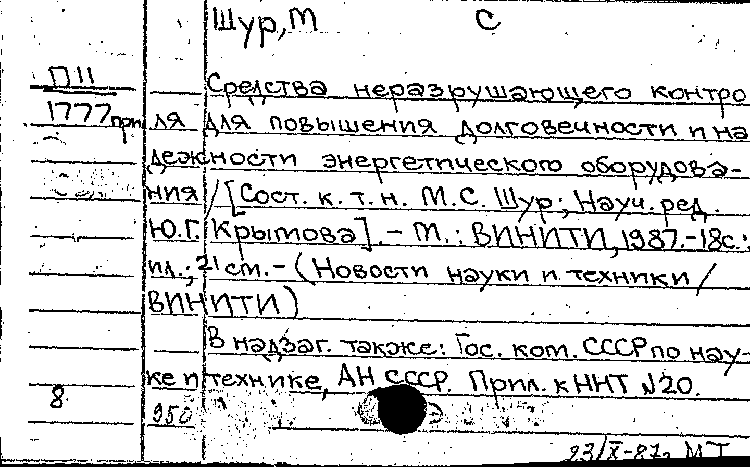 Шур, М С
П11
1777 прил
Средства неразрушающего контро
ля для повышения долговечности и на
дежности энергетического оборудова-
ния / [Сост. к. т. н. М.С. Шур; Науч. ред.
Ю.Г. Крымова]. - М.: ВИНИТИ, 1987. - 18с.:
ил.; 21 см. - (Новости науки и техники /
ВИНИТИ)
В надзаг. также: Гос. ком. СССР по нау-
ке и технике, АН СССР. Прил. к ННТ №20.
8
950
23/X-87г МТ